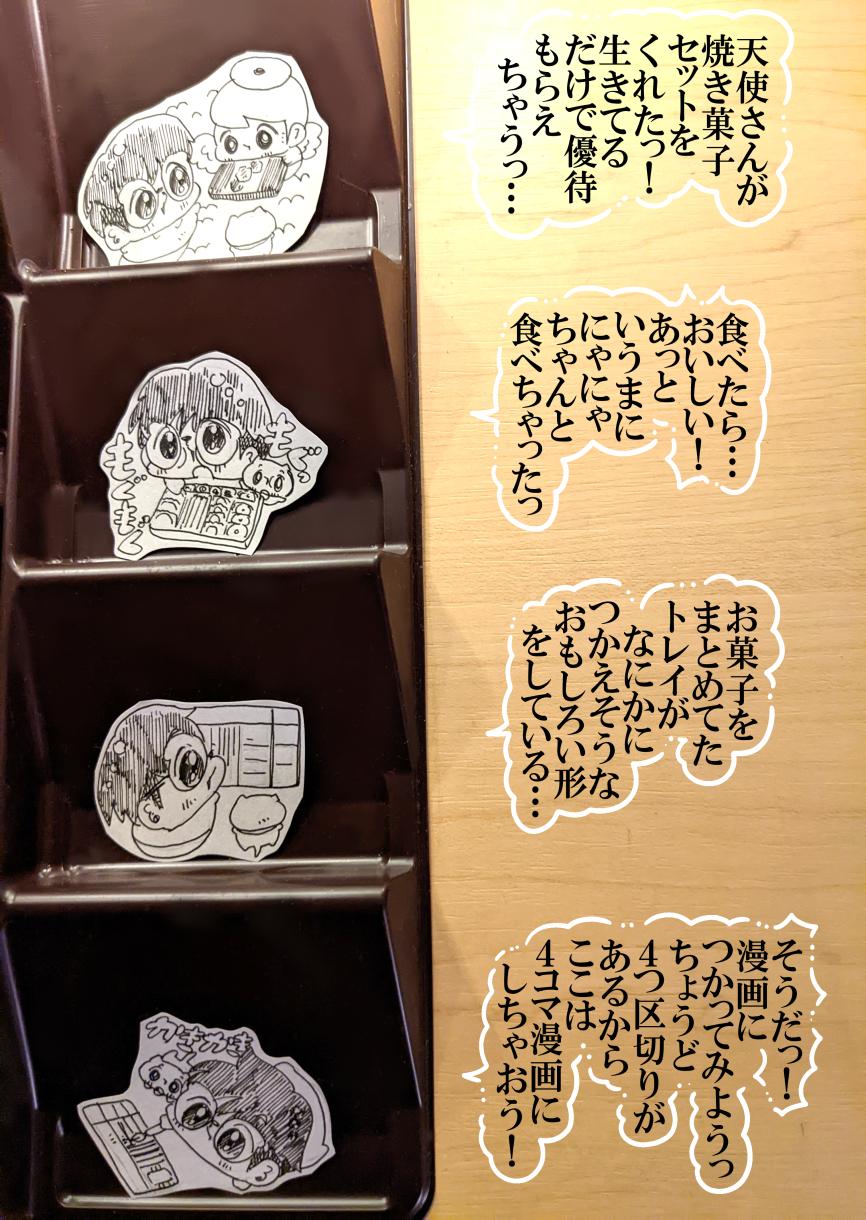 天使さんが
焼き菓子
セットを
くれたっ!
生きてる
だけで優待
もらえ
ちゃうっ…
食べたら…
おいしい!
あっと
いうまに
にゃにゃ
ちゃんと
食べちゃったっ
もぐっ
もぐもぐ
お菓子を
まとめてた
トレイが
なにかに
つかえそうな
おもしろい形
をしている…
そうだっ!
漫画に
つかってみようっ
ちょうど
4つ区切りが
あるから
ここは
4コマ漫画に
しちゃおう!
カキカキ